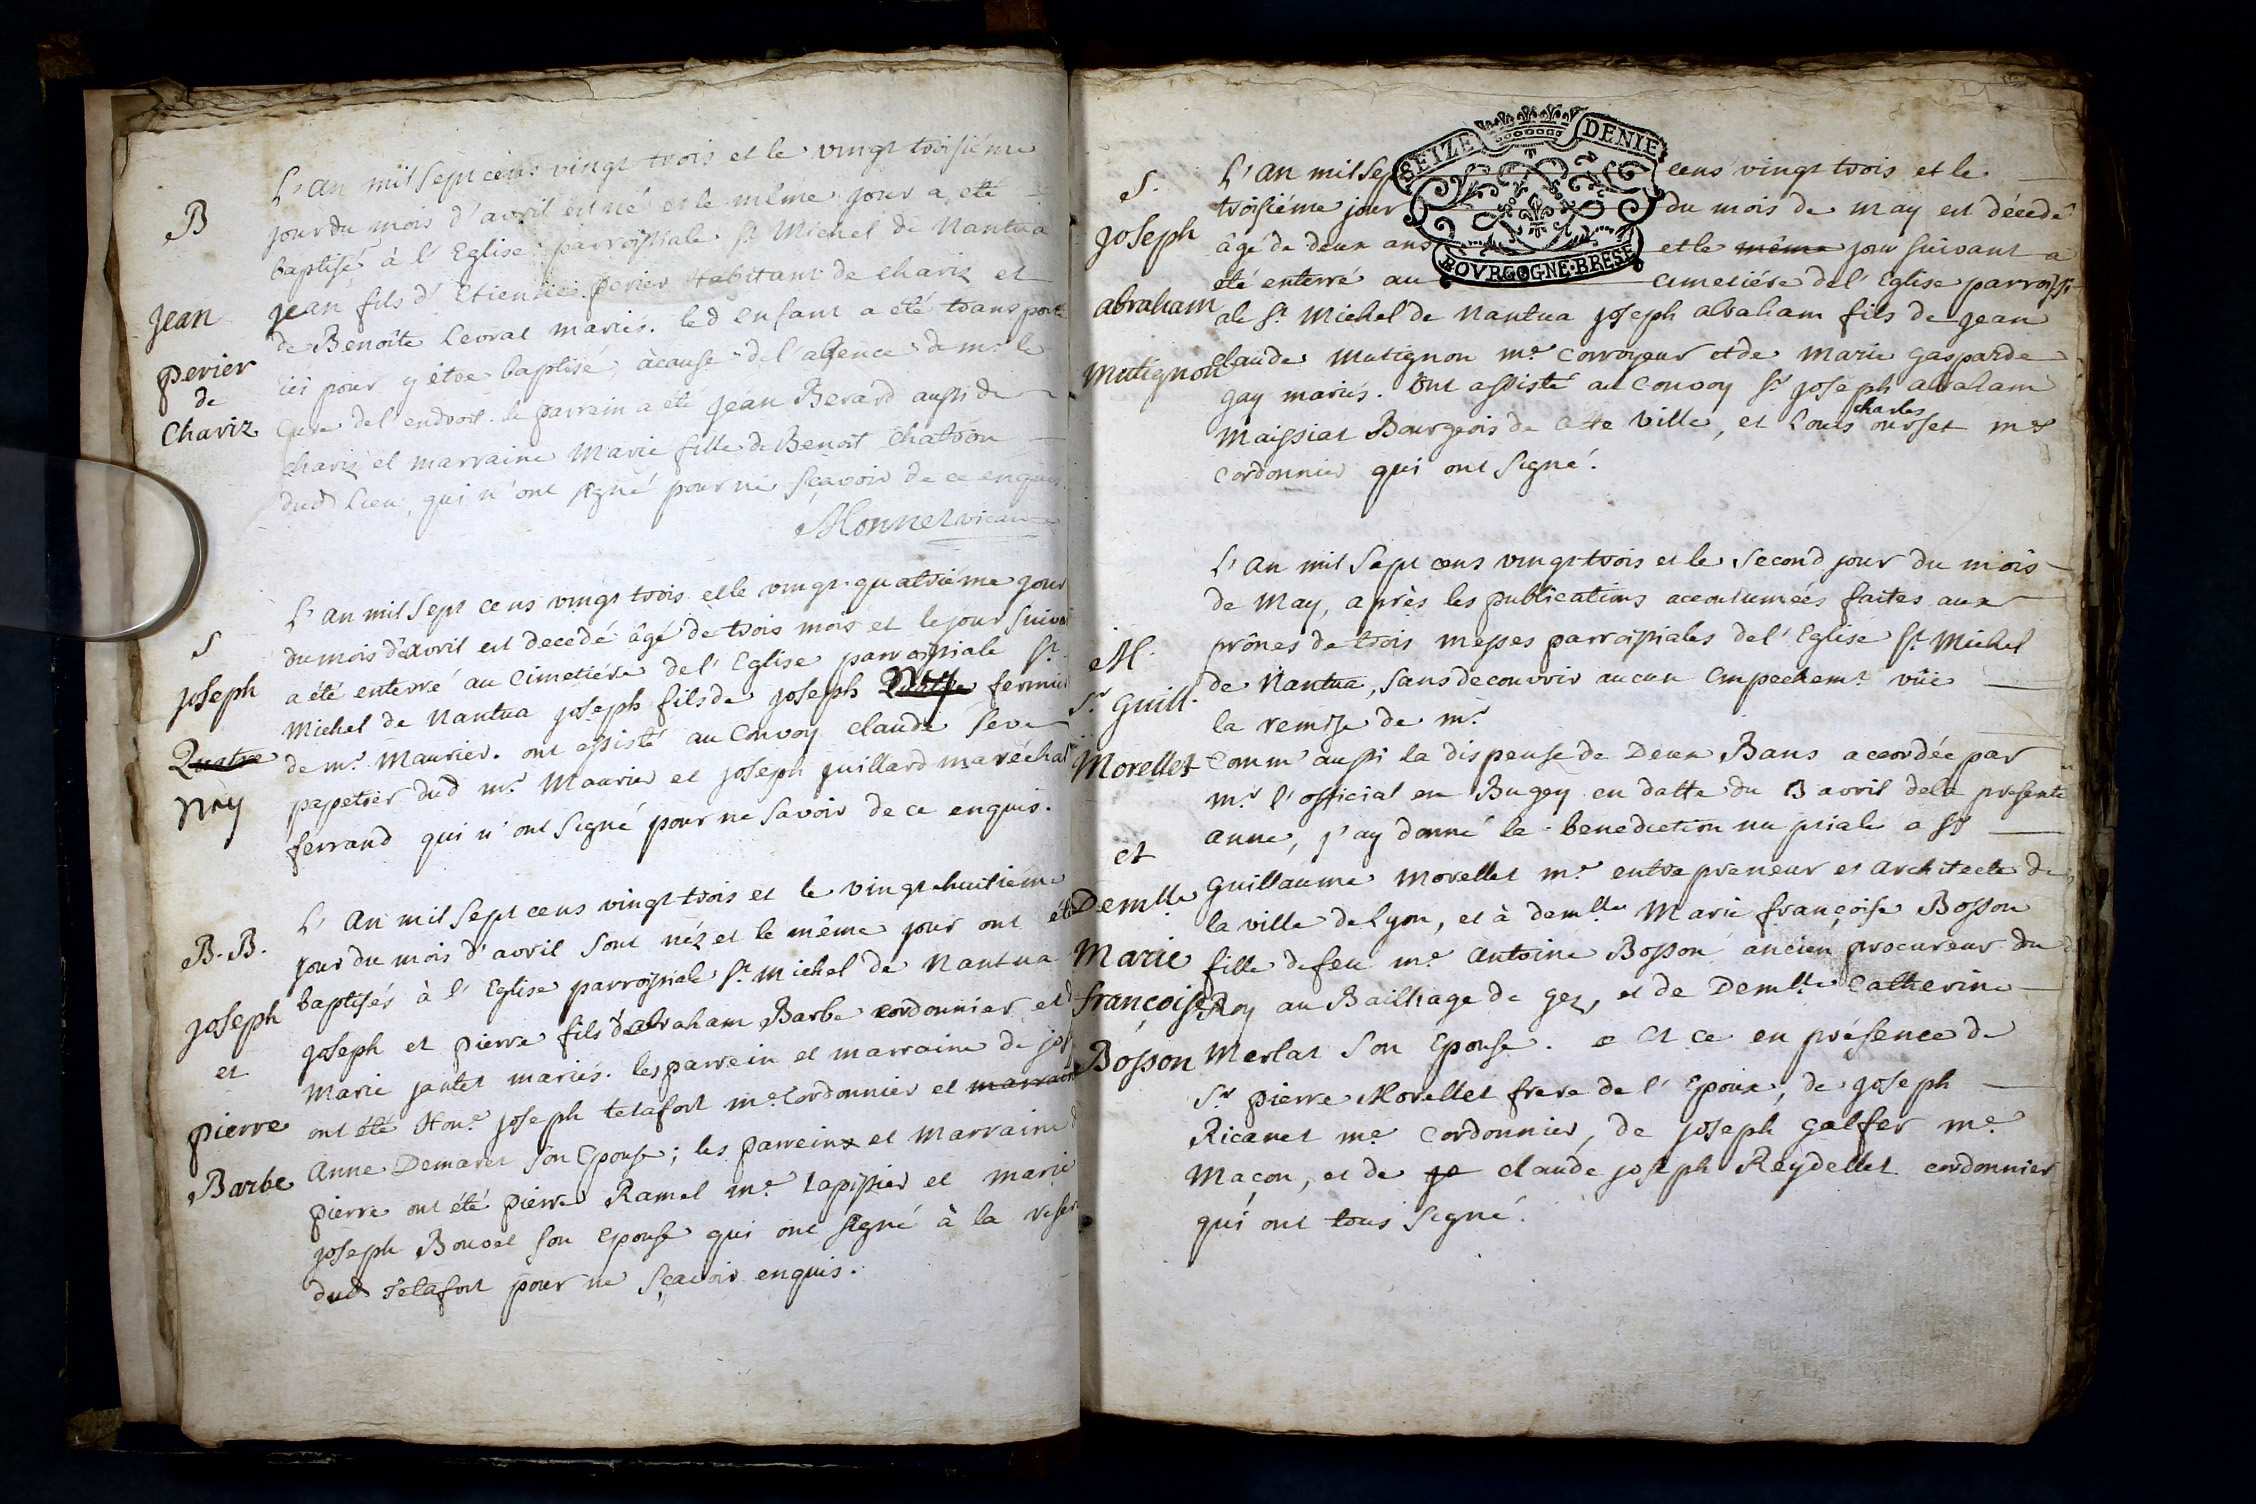 B
Jean
perier
de
Chariz
L'an mil sept cens vingt trois et le vingt troisiéme
jour du mois d'avril est né et le même jour a eté
baptisé à l'Eglise parroissiale St Michel de Nantua
jean fils d'Etienne perier Habitant de chariz et
de Benoîte Levrat mariés. led enfant a eté transporté
ici pour y étre baptisé àcause de l'absence de mr le
Curé de l'endroit. le parrain a eté jean Berard aussi de
chariz et marraine Marie fille de Benoit Chatron
dud Lieu, qui n'ont signé pour ne sçavoir de ce enquis.
Monnet vicaire
S
joseph
Quatre
Nry
L'an mil sept cens vingt trois et le vingt quatriéme jour
du mois d'avril est decedé âgé de trois mois et le jour suiva
a été enterré au Cimetiére de l'Eglise parroissiale St
Michel de Nantua joseph fils de joseph Nry fermier
de mr Maurier. ont assisté au Convoy claude seve
papetier dud mr Maurier et joseph juillard maréchal
ferrand qui n'ont signé pour ne savoir de ce enquis.
B. B.
joseph
et
pierre
Barbe
L'An mil sept cens vingt trois et le vingt huitiéme
jour du mois d'avril sont néz et le même jour ont été
baptisés à l'Eglise parroissiale St Michel de Nantua
joseph et pierre fils d'abraham Barbe cordonnier et d
Marie jantet mariés. les parrein et marraine de jos
ont été Hon.e joseph tetafort me Cordonnier et marraine
Anne Demaret son Epouse; les parreinx et Marraine d
pierre ont été pierre Ramel me tapissier et marie
joseph Bouvet son Epouse qui ont signé à la reser
dud Tetafort pour ne sçavoir enquis.
SEIZE DENIE
BOVRGOGNE·BRESE
S.
joseph
abraham
Mutignon
L'an mil sep cens vingt trois et le
troisiéme jour du mois de may est décedé
âgé de deux ans et le même jour suivant a
eté enterré au cimetiére de l'Eglise parroissi
ale St Michel de Nantua joseph abraham fils de jean
claude Mutignon me Corroyeur et de Marie gasparde
gay mariés. Ont assisté au Convoy Sr joseph abraham
Maissiat Bourgeois de cette ville, et Louis charles ourset me
cordonnier qui ont signé.
M.
Sr Guill.
Morellet
et
Demlle
Marie
françoise
Bosson
L'an mil sept cens vingt trois et le second jour du mois
de May, après les publications accoutumées faites aux
prônes de trois messes parroissiales de l'Eglise St Michel
de Nantua, sans decouvrir aucun Empechemt vüe
la remise de mr
Comm' aussi la dispense de Deux Bans accordée par
mr l'official en Bugey en datte du 13 avril de la presente
anne, j'ay donné la benediction nuptiale a Sr
Guillaume Morellet me entrepreneur et Architecte de
la ville de Lyon, et à demlle Marie françoise Bosson
fille de feu me Antoine Bosson ancien procureur du
Roy au Bailliage de gez, et de Demlle Catherine
Merlat son Epouse. e Et ce en présence de
Sr pierre Morellet frere de l'Epoux, de joseph
Ricanet me Cordonnier, de joseph Galfer me
Maçon, et de je claude joseph Reydellet cordonnier
qui ont tous signé.